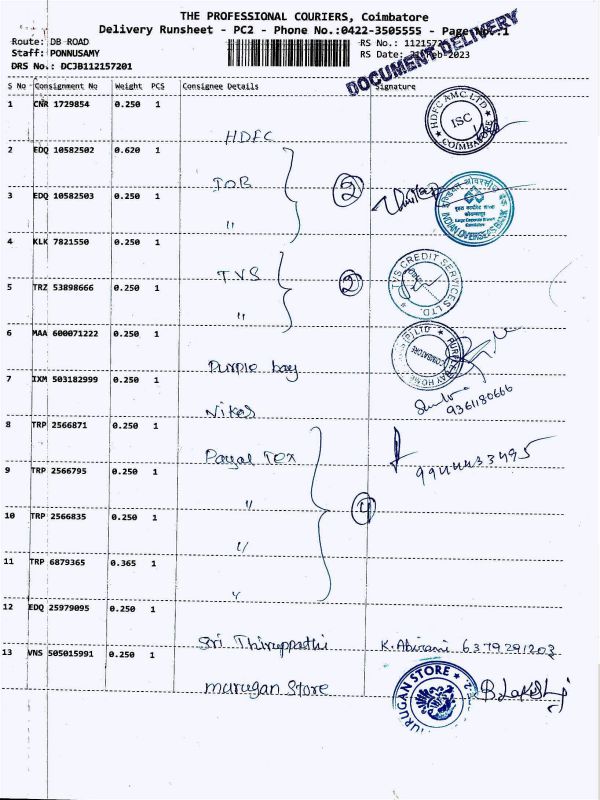 THE PROFESSIONAL COURIERS, Coimbatore
Delivery Runsheet - PC2 - Phone No.:0422-3505555 - Page No.:1
Route: DB ROAD
RS No.: 1121572
Staff: PONNUSAMY
RS Date: 21 Feb-2023
DRS No.: DCJB112157201
DOCUMENT DELIVERY
S No Consignment No Weight PCS Consignee Details Signature
1 CNR 1729854 0.250 1 HDFC
HDFC AMC LTD
ISC
COIMBATORE
2 EDQ 10582502 0.620 1 IOB
2
3 EDQ 10582503 0.250 1 "
INDIAN OVERSEAS BANK
4 KLK 7821550 0.250 1 TVS
2
TVS CREDIT SERVICES LTD.
5 TRZ 53898666 0.250 1 "
6 MAA 600071222 0.250 1 Purple bay
COIMBATORE
7 IXM 503182999 0.250 1 Nikas
9361180666
8 TRP 2566871 0.250 1 Payal Tex
9944433495
9 TRP 2566795 0.250 1 "
4
10 TRP 2566835 0.250 1 "
11 TRP 6879365 0.365 1 "
12 EDQ 25979095 0.250 1 Sri Thiruppathi K. Abirami 6379291203
13 VNS 505015991 0.250 1 murugan Store
MURUGAN STORE